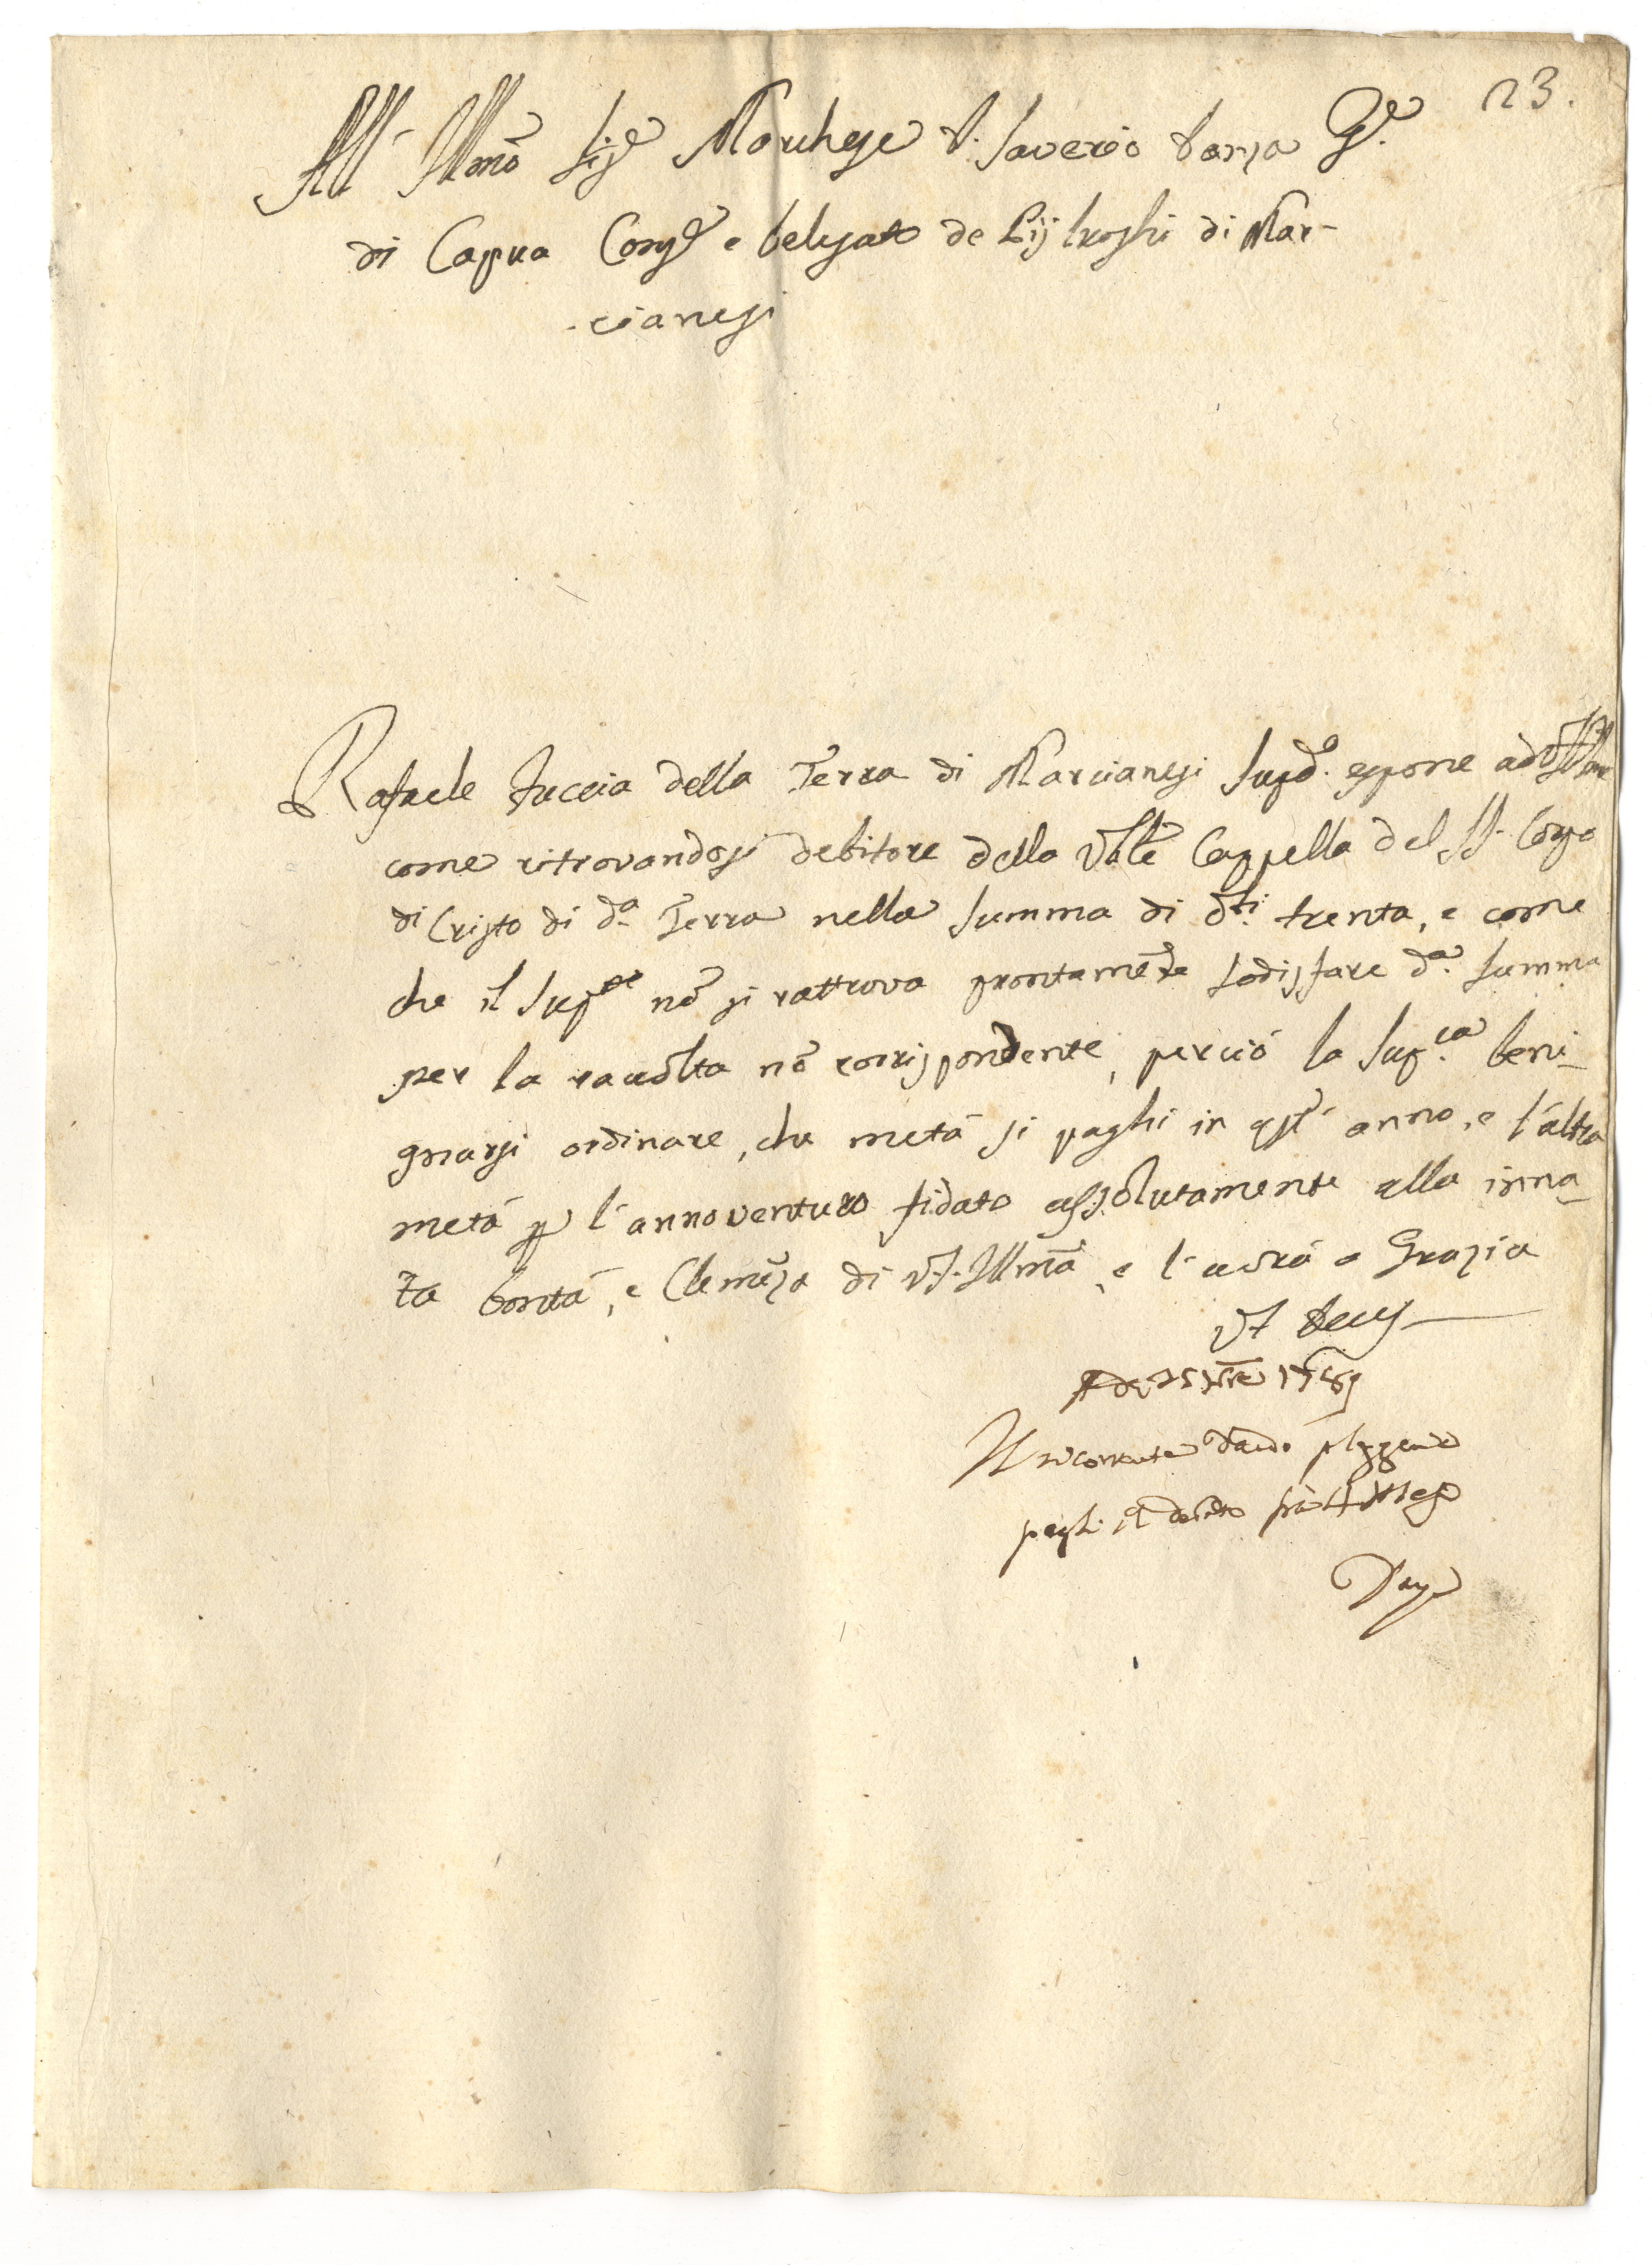 23.
All' Illmo Sigre Marchese D. Saverio Danza Gre
di Capua Consre e Delegato de Pij luoghi di Mar-
-cianesi
Rafaele Tuccia della Terra di Marcianesi suppd. espone ad V.S. Illma
come ritrovandosi debitore della Vble Cappella del SS. Corpo
di Cristo di da. Terra nella summa di dti. trenta, e come
che il suppte no si rattrova prontamete sodisfare da. summa
per la raccolta no corrispondente, perciò la suppca beni-
gnarsi ordinare, che metá si paghi in qst' anno, e l'altra
metá p l'anno venturo fidato assolutamente alla inna-
ta bontá, e Clemeza di V.S. Illma, e l'avrá a Grazia
Vt Deus
Il ricorrente dando pleggeria
paghi il debito